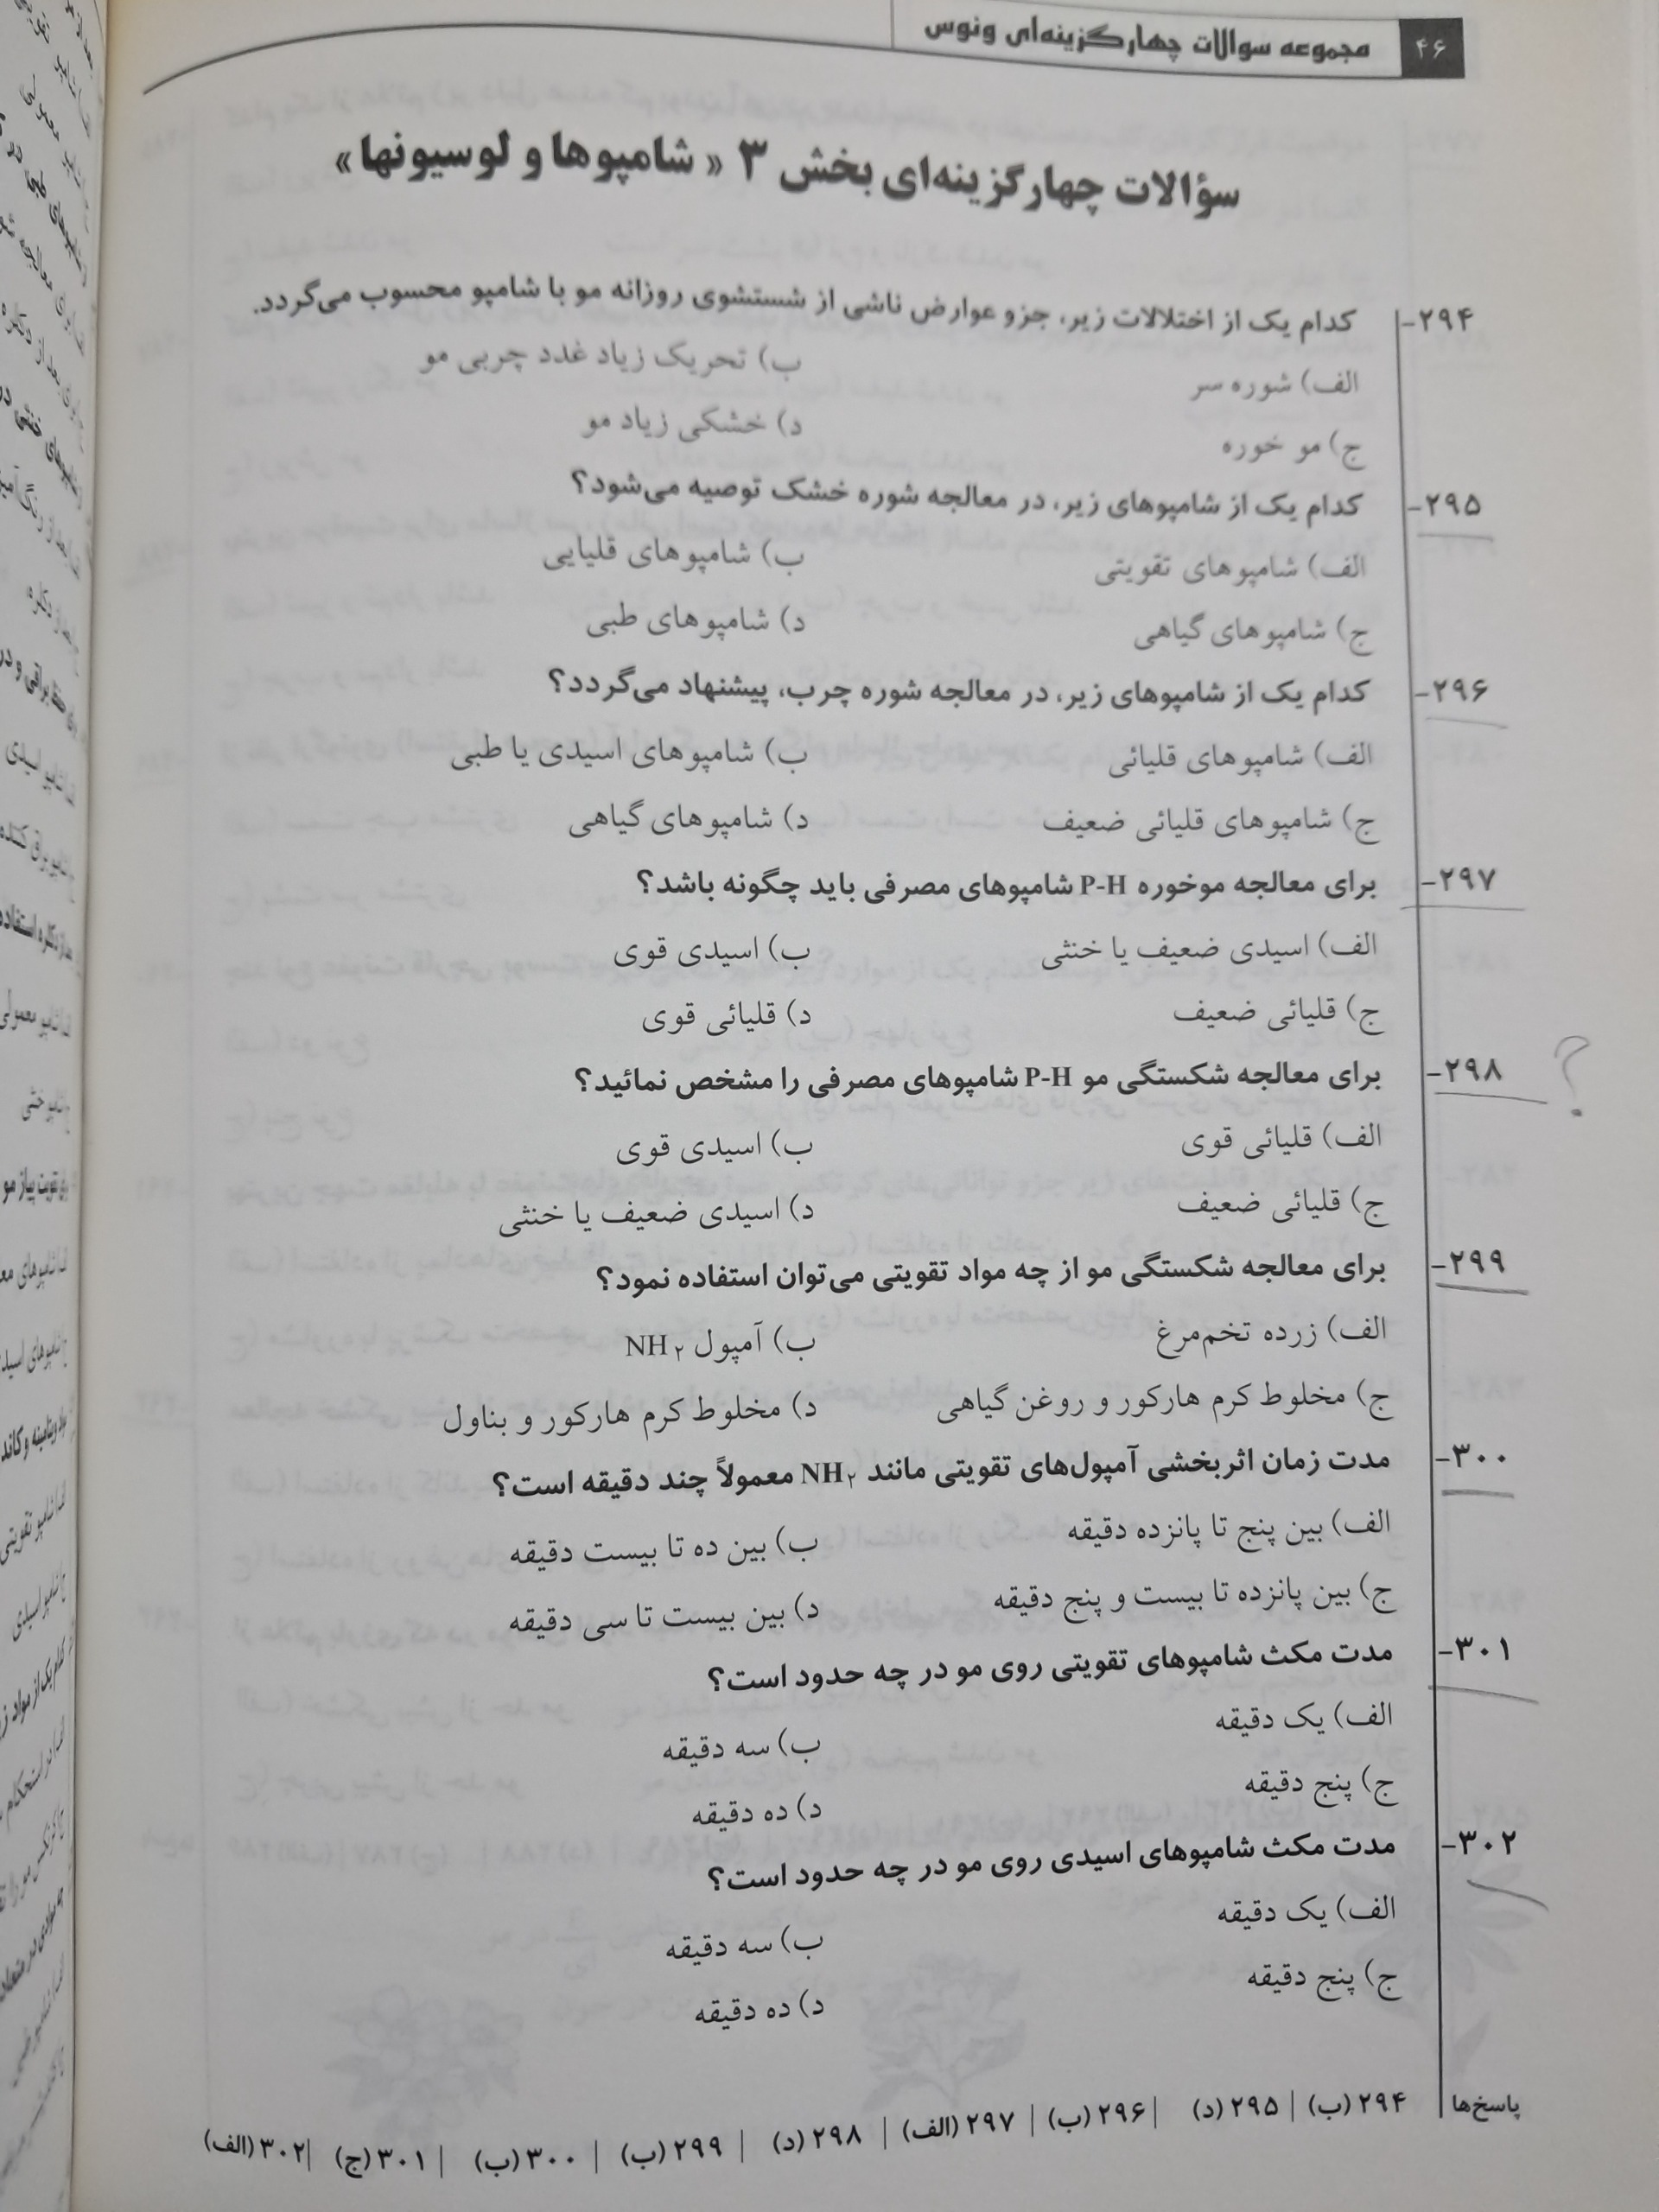 ۴۶
مجموعه سوالات چهارگزینه‌ای ونوس
سؤالات چهارگزینه‌ای بخش ۳ « شامپوها و لوسیونها »
۲۹۴- کدام یک از اختلالات زیر، جزو عوارض ناشی از شستشوی روزانه مو با شامپو محسوب می‌گردد.
الف) شوره سر ب) تحریک زیاد غدد چربی مو
ج) مو خوره د) خشکی زیاد مو
۲۹۵- کدام یک از شامپوهای زیر، در معالجه شوره خشک توصیه می‌شود؟
الف) شامپوهای تقویتی ب) شامپوهای قلیایی
ج) شامپوهای گیاهی د) شامپوهای طبی
۲۹۶- کدام یک از شامپوهای زیر، در معالجه شوره چرب، پیشنهاد می‌گردد؟
الف) شامپوهای قلیائی ب) شامپوهای اسیدی یا طبی
ج) شامپوهای قلیائی ضعیف د) شامپوهای گیاهی
۲۹۷- برای معالجه موخوره P-H شامپوهای مصرفی باید چگونه باشد؟
الف) اسیدی ضعیف یا خنثی ب) اسیدی قوی
ج) قلیائی ضعیف د) قلیائی قوی
۲۹۸- برای معالجه شکستگی مو P-H شامپوهای مصرفی را مشخص نمائید؟
؟
الف) قلیائی قوی ب) اسیدی قوی
ج) قلیائی ضعیف د) اسیدی ضعیف یا خنثی
۲۹۹- برای معالجه شکستگی مو از چه مواد تقویتی می‌توان استفاده نمود؟
الف) زرده تخم‌مرغ ب) آمپول NH۲
ج) مخلوط کرم هارکور و روغن گیاهی د) مخلوط کرم هارکور و بناول
۳۰۰- مدت زمان اثربخشی آمپول‌های تقویتی مانند NH۲ معمولاً چند دقیقه است؟
الف) بین پنج تا پانزده دقیقه ب) بین ده تا بیست دقیقه
ج) بین پانزده تا بیست و پنج دقیقه د) بین بیست تا سی دقیقه
۳۰۱- مدت مکث شامپوهای تقویتی روی مو در چه حدود است؟
الف) یک دقیقه ب) سه دقیقه
ج) پنج دقیقه د) ده دقیقه
۳۰۲- مدت مکث شامپوهای اسیدی روی مو در چه حدود است؟
الف) یک دقیقه ب) سه دقیقه
ج) پنج دقیقه د) ده دقیقه
پاسخ‌ها | ۲۹۴ (ب) | ۲۹۵ (د) | ۲۹۶ (ب) | ۲۹۷ (الف) | ۲۹۸ (د) | ۲۹۹ (ب) | ۳۰۰ (ب) | ۳۰۱ (ج) | ۳۰۲ (الف)